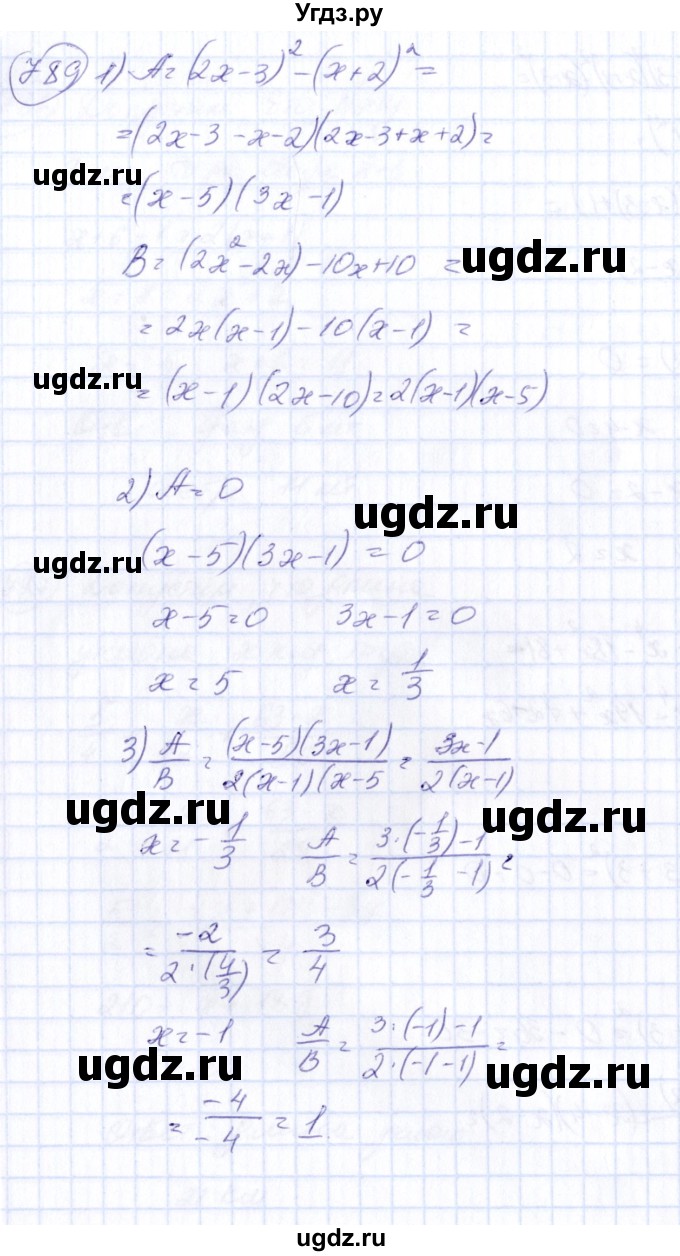 Угдз.ру
789 1) A = (2x-3)² - (x+2)² =
= (2x-3-x-2)(2x-3+x+2) =
ugdz.ru
= (x-5)(3x-1)
B = (2x²-2x)-10x+10 =
ugdz.ru
= 2x(x-1)-10(x-1) =
ugdz.ru
= (x-1)(2x-10) = 2(x-1)(x-5)
2) A = 0
ugdz.ru
ugdz.ru
(x-5)(3x-1) = 0
x-5=0 3x-1=0
x = 5 x = 1/3
3) A/B = (x-5)(3x-1)/2(x-1)(x-5 = 3x-1/2(x-1)
ugdz.ru
ugdz.ru
x = -1/3 A/B = 3·(-1/3)-1/2(-1/3-1) =
= -2/2·(4/3) = 3/4
x = -1 A/B = 3·(-1)-1/2·(-1-1) =
ugdz.ru
ugdz.ru
= -4/-4 = 1
ugdz.ru